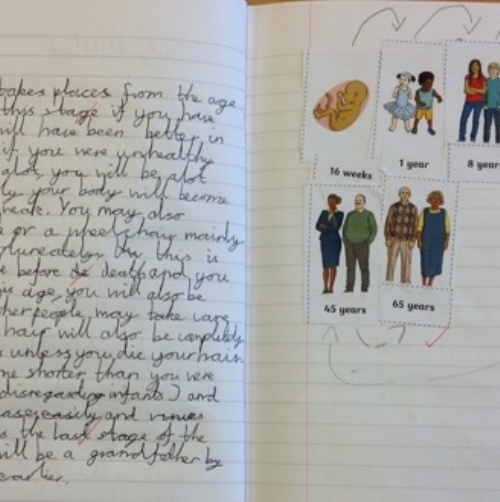 takes places from the age
this stage if you have
will have been better in
if you were unhealthy
alot, you will be alot
your body will become
weak. You may also
or a wheelchair mainly
this is
before death and you
age, you will also be
people, may take care
hair will also be completely
unless you die your hair.
me shorter than you were
(disregarding infants) and
easily and
the last stage of the
will be a grandfather by
earlier.
16 weeks
1 year
8 year
45 years
65 years